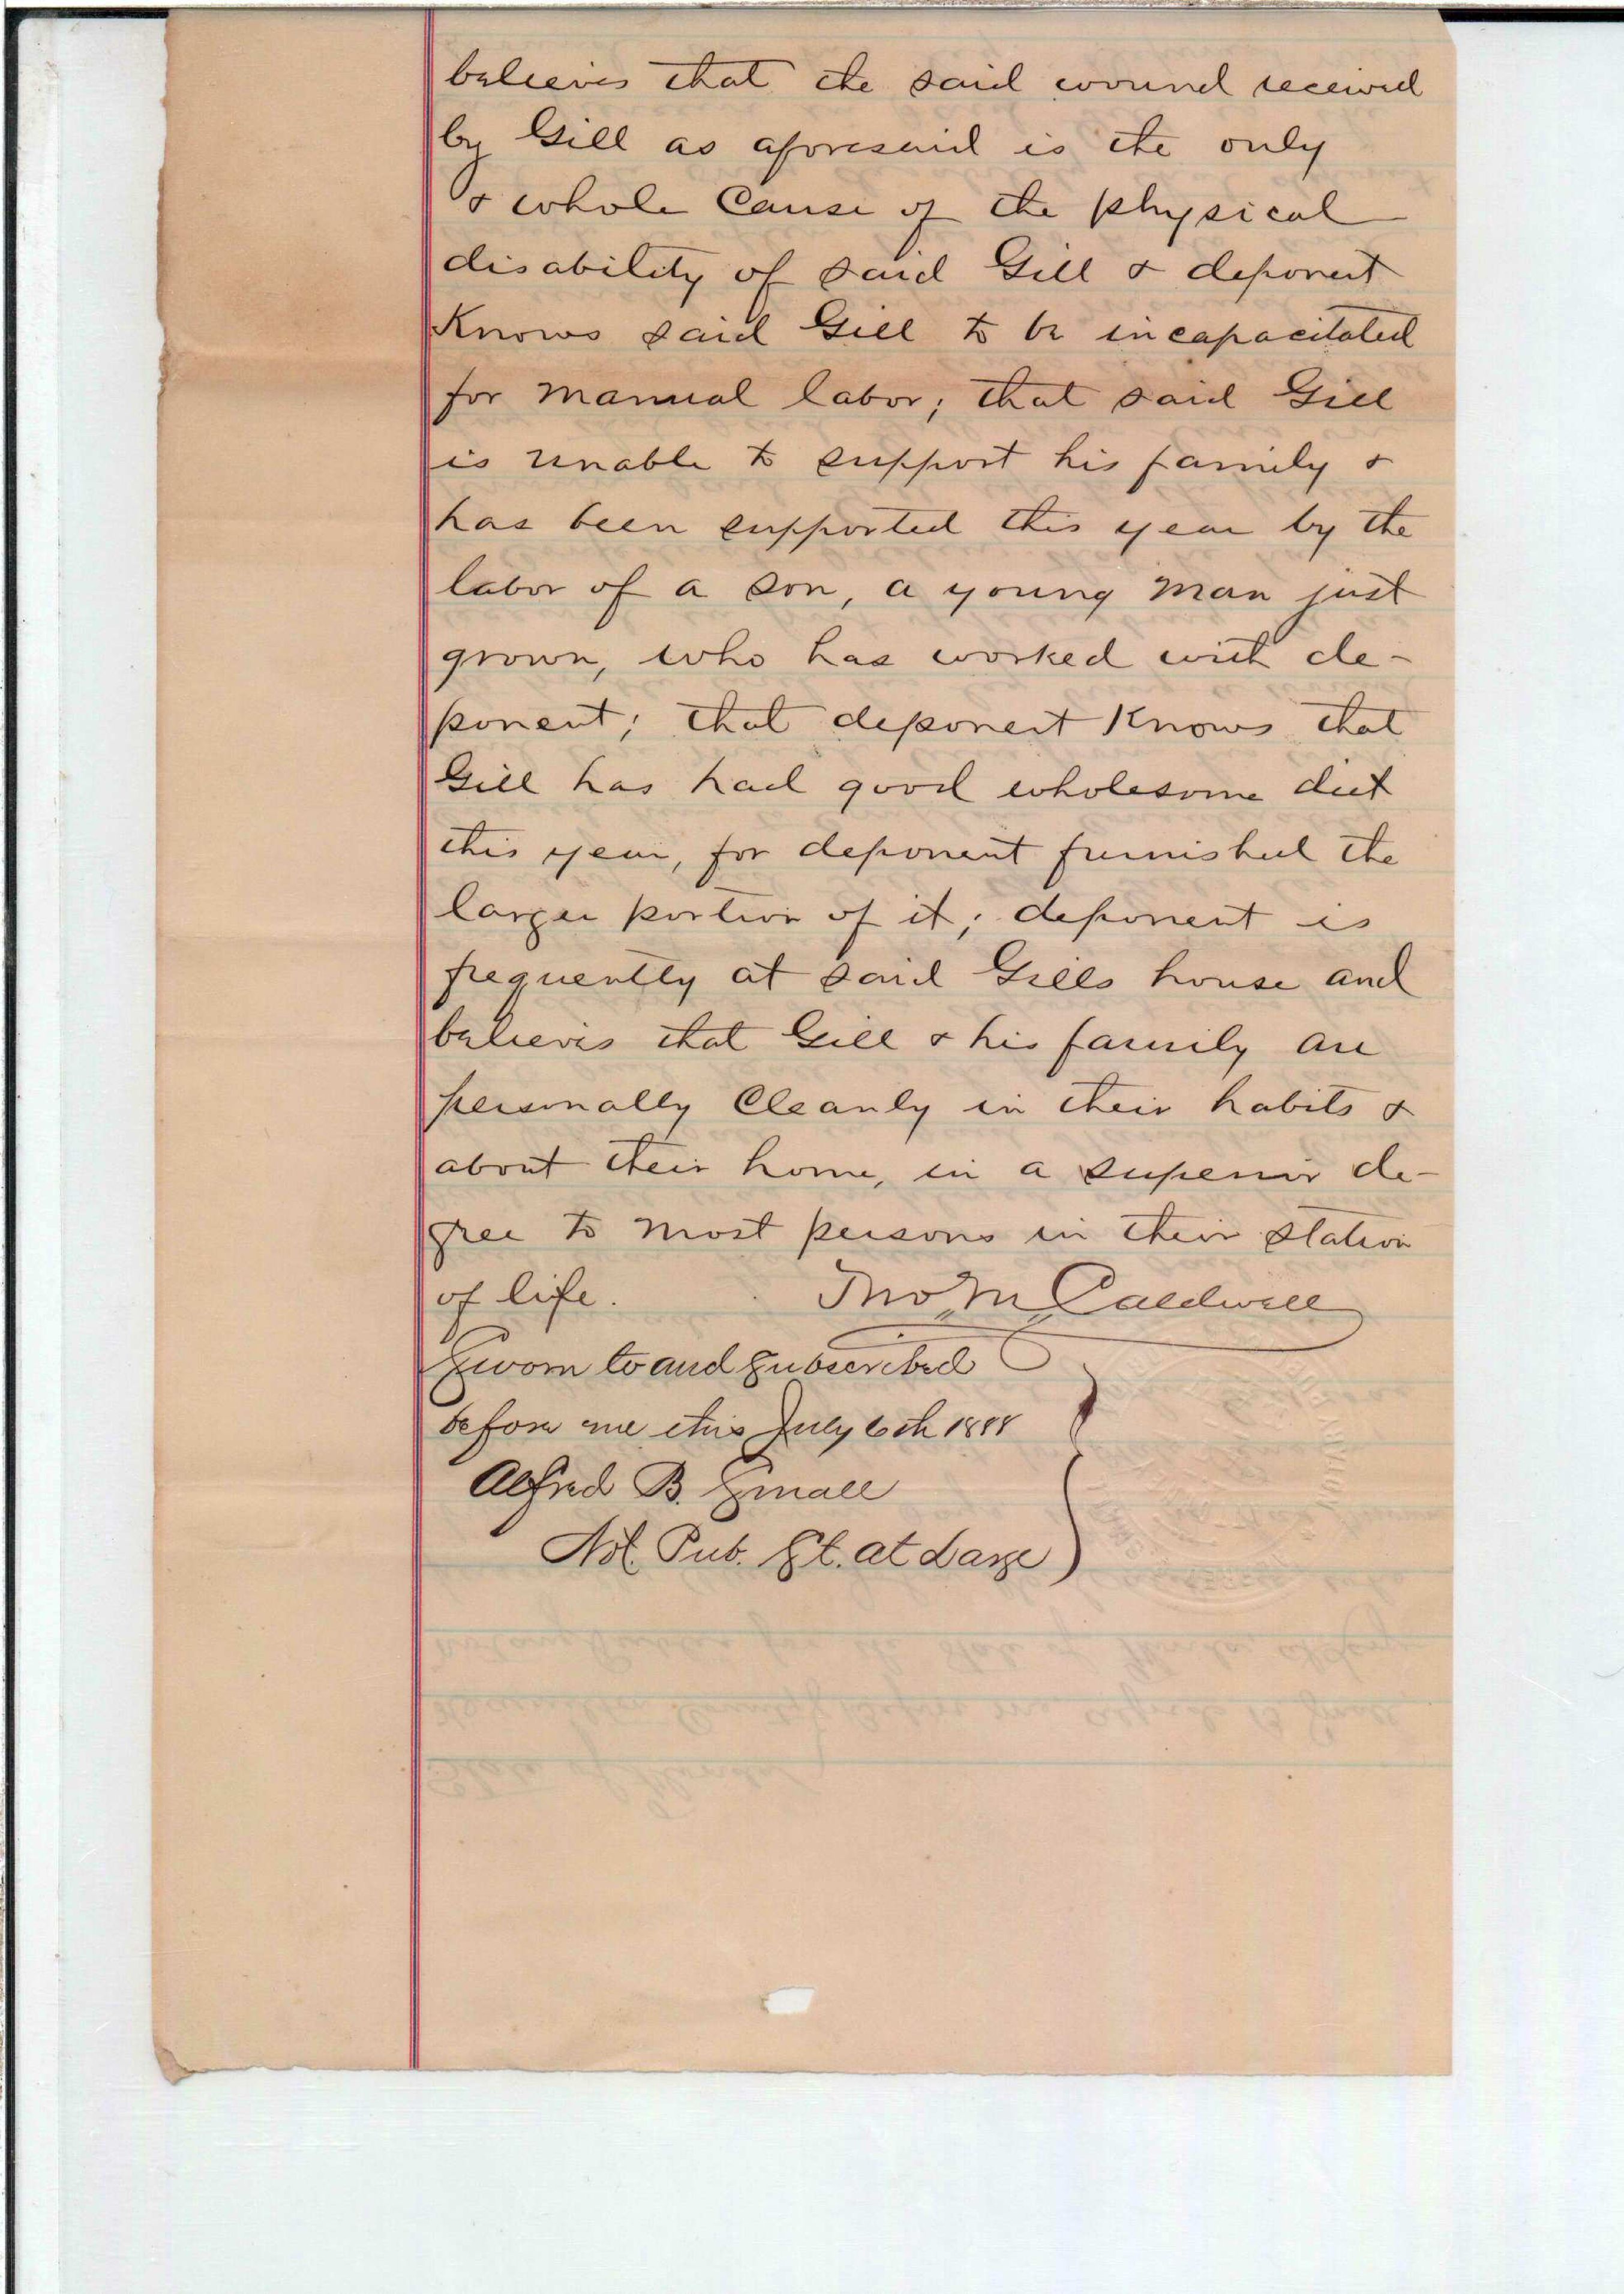 believes that the said wound received
by Gill as aforesaid is the only
& whole Cause of the physical
disability of said Gill & deponent
Knows said Gill to be incapacitated
for manual labor; that said Gill
is unable to support his family &
has been supported this year by the
labor of a son, a young man just
grown, who has worked with de-
ponent; that deponent Knows that
Gill has had good wholesome diet
this year, for deponent furnished the
larger portion of it; deponent is
frequently at said Gills house and
believes that Gill & his family are
personally Cleanly in their habits &
about their home, in a superior de-
gree to most persons in their station
of life. Tho M Caldwell
Sworn to and Subscribed
before me this July 6th 1888
Alfred B. Small
Not. Pub. St. at Large